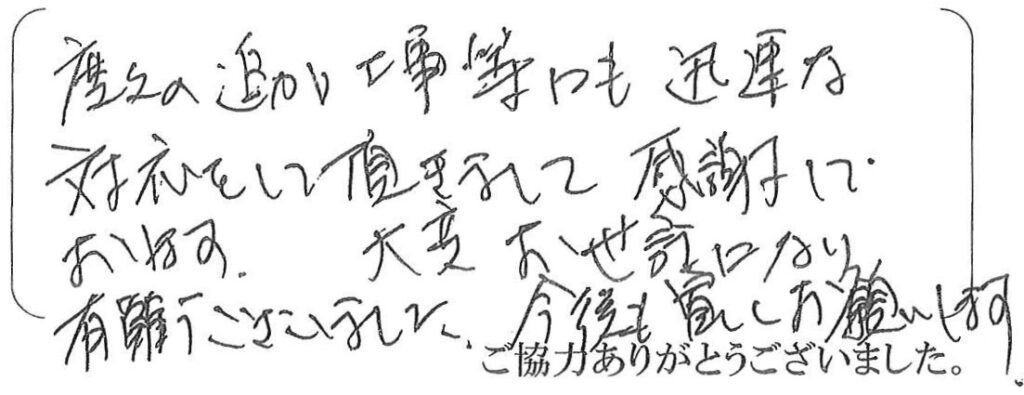 度々の追加工事等にも迅速な
対応をして頂きまして感謝して
おります。大変お世話になり
有難うございました、今後も宜しくお願いします。
ご協力ありがとうございました。